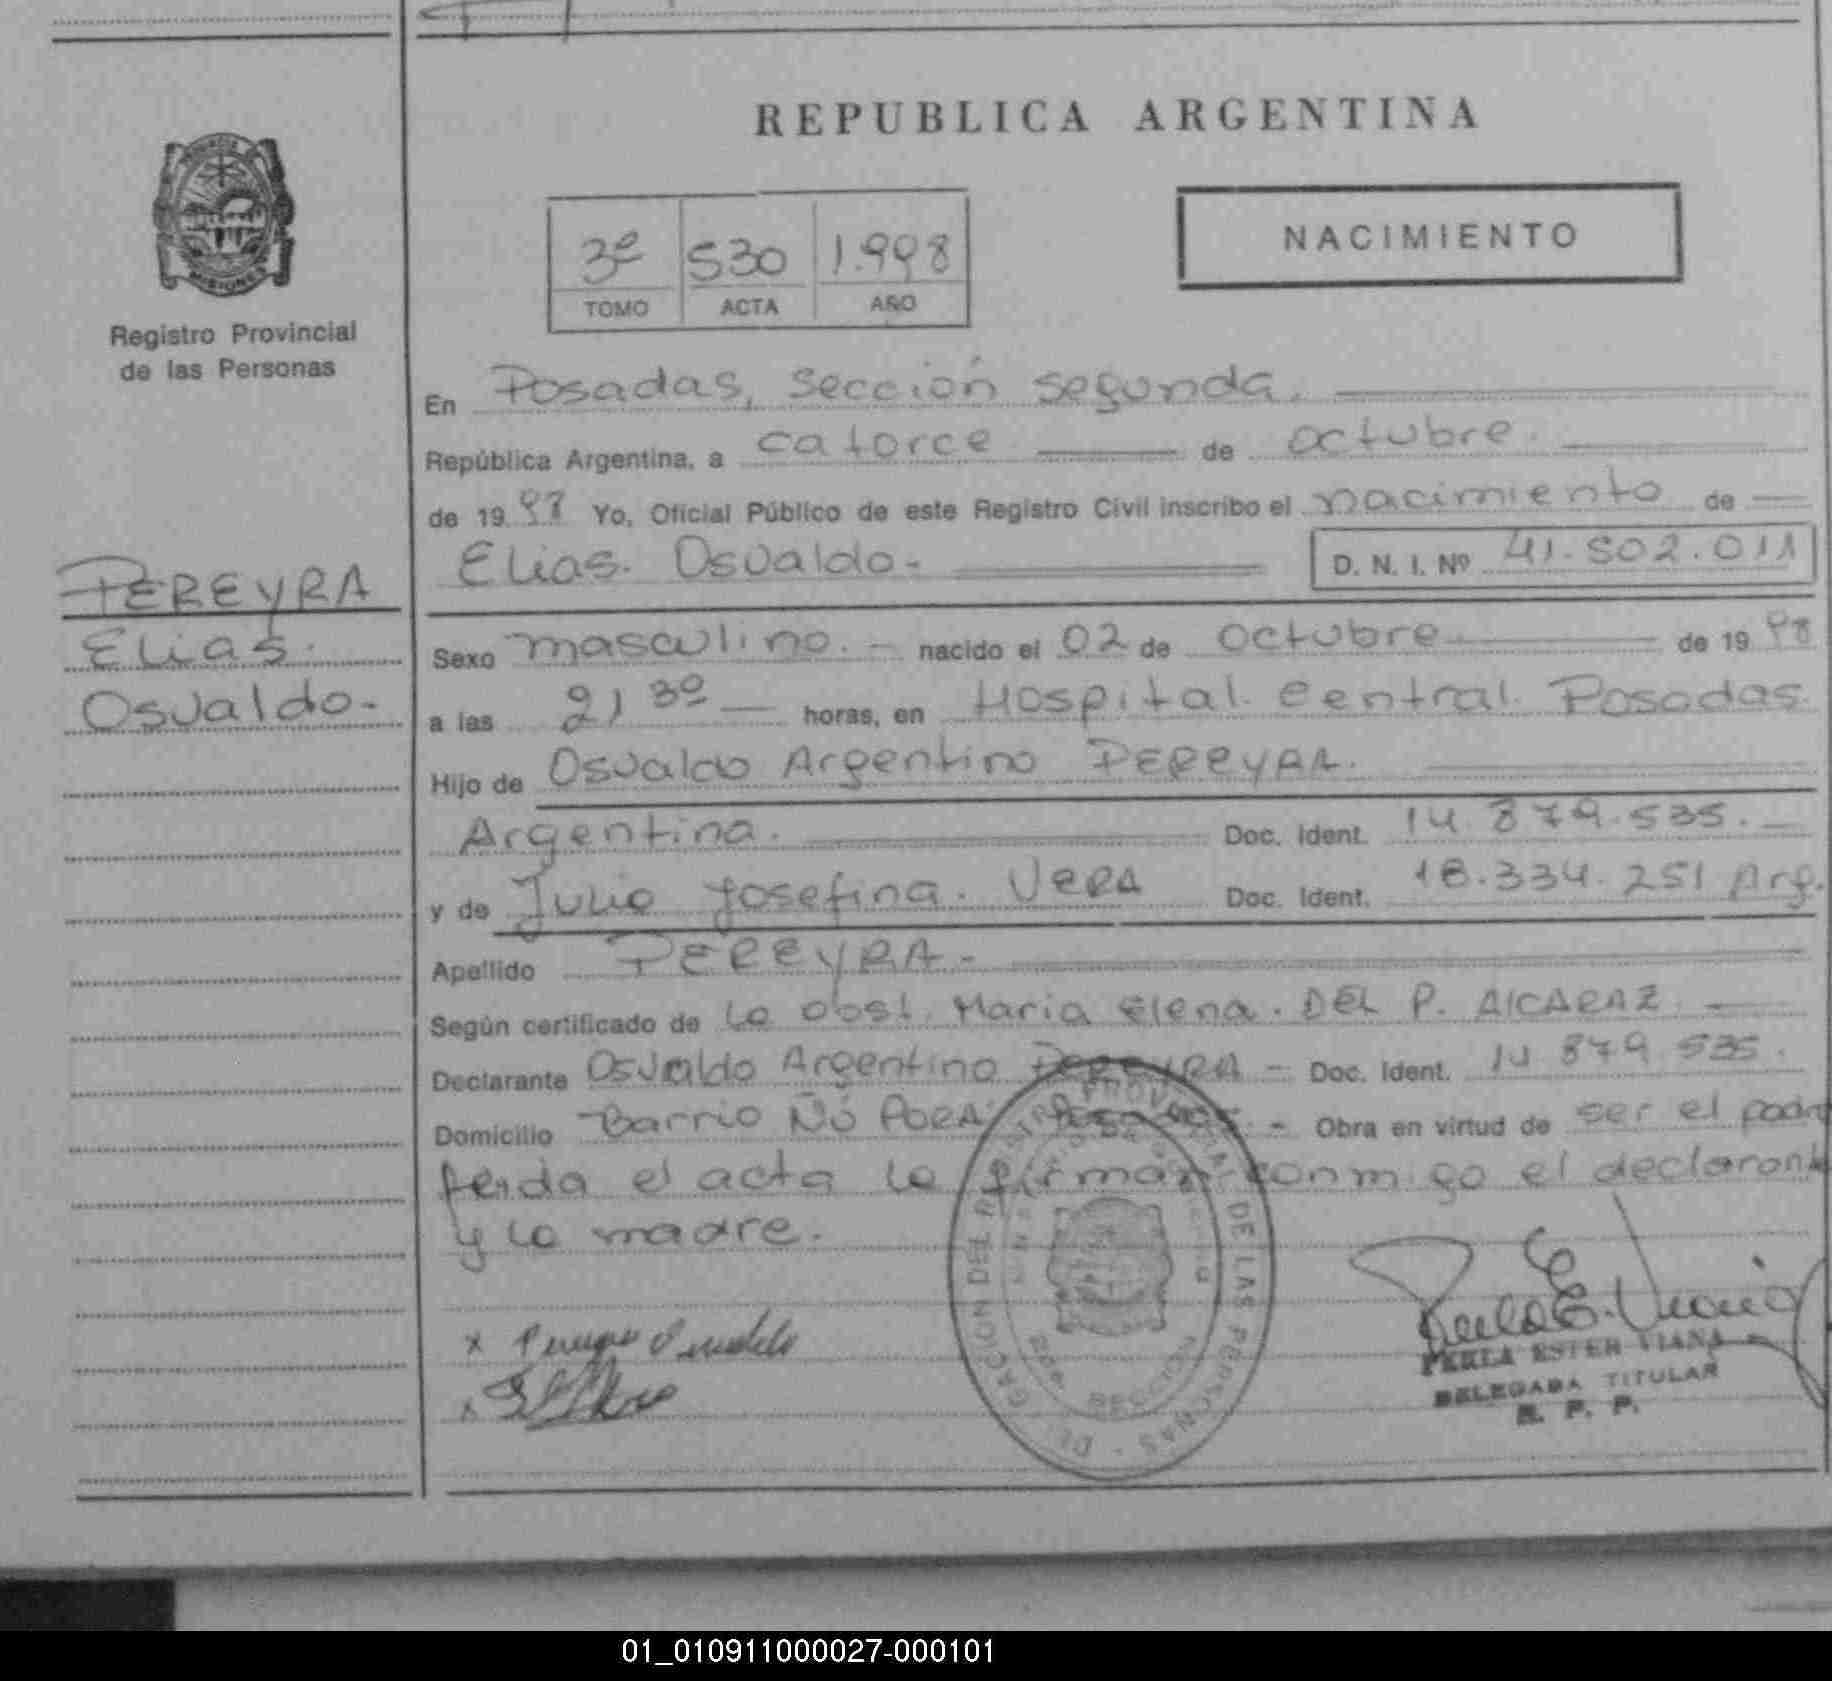 REPUBLICA ARGENTINA
MISIONES
Registro Provincial
de las Personas
3º 530 1.998
TOMO ACTA AÑO
NACIMIENTO
En Posadas, sección segunda.
República Argentina, a catorce de octubre.
de 1998 Yo, Oficial Público de este Registro Civil inscribo el nacimiento de
Elias. Osvaldo.-
D. N. I. Nº 41.502.011
PEREYRA
Elias.
Osvaldo.-
Sexo masculino. - nacido el 02 de octubre de 1998
a las 21 30 horas, en Hospital Central Posadas.
Hijo de Osvaldo Argentino PEREYRA.
Argentina. Doc. Ident. 14.879.535.-
y de Julia Josefina. VERA Doc. Ident. 18.334.251 Arg.
Apellido PEREYRA.-
Según certificado de la obst. Maria Elena. DEL P. AlCARAZ
Declarante Osvaldo Argentino PEREYRA - Doc. Ident. 14 879.535.
Domicilio Barrio Ñú PORÁ Posadas.- Obra en virtud de ser el padre
leida el acta la firman conmigo el declarante
y la madre.
DELEGACION DEL REGISTRO PROVINCIAL DE LAS PERSONAS
PERLA ESTER VIANA
DELEGADA TITULAR
R. P. P.
01_010911000027-000101